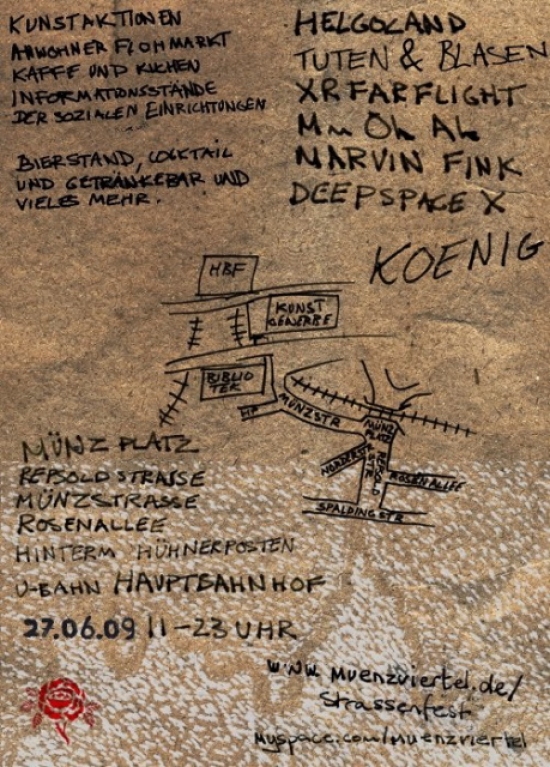 KUNSTAKTIONEN
ANWOHNER FLOHMARKT
KAFFE UND KUCHEN
INFORMATIONSSTÄNDE
DER SOZIALEN EINRICHTUNGEN
BIERSTAND, COCKTAIL
UND GETRÄNKEBAR UND
VIELES MEHR.
HELGOLAND
TUTEN & BLASEN
XRFARFLIGHT
Mm Öh Ah
MARVIN FINK
DEEPSPACE X
KOENIG
HBF
KUNST
GEWERBE
BIBLIO
TEK
HP
MÜNZSTR
MÜNZ
PLATZ
NORDERSTR
REPSOLD
STR
ROSENALLEE
SPALDINGSTR
MÜNZ PLATZ
REPSOLD STRASSE
MÜNZSTRASSE
ROSENALLEE
HINTERM HÜHNERPOSTEN
U-BAHN HAUPTBAHNHOF
27.06.09 11-23 UHR
www.muenzviertel.de/
strassenfest
myspace.com/muenzviertel